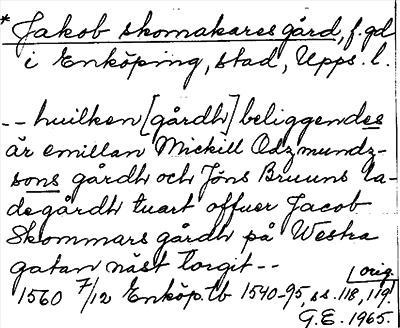 * Jakob skomakares gård, f. gd
i Enköping, stad, Upps. l.
-- huilken [gårdh] beliggendes
är emillan Mickill Odzmundz-
sons gårdh och Jöns Bruuns la-
degårdh tuart offuer Jacob
Skommars gårdh på Westra
gatan näst torgit --
1560 7/12 Enköp. tb 1540-95, ss. 118, 119.
orig.
G.E. 1965.